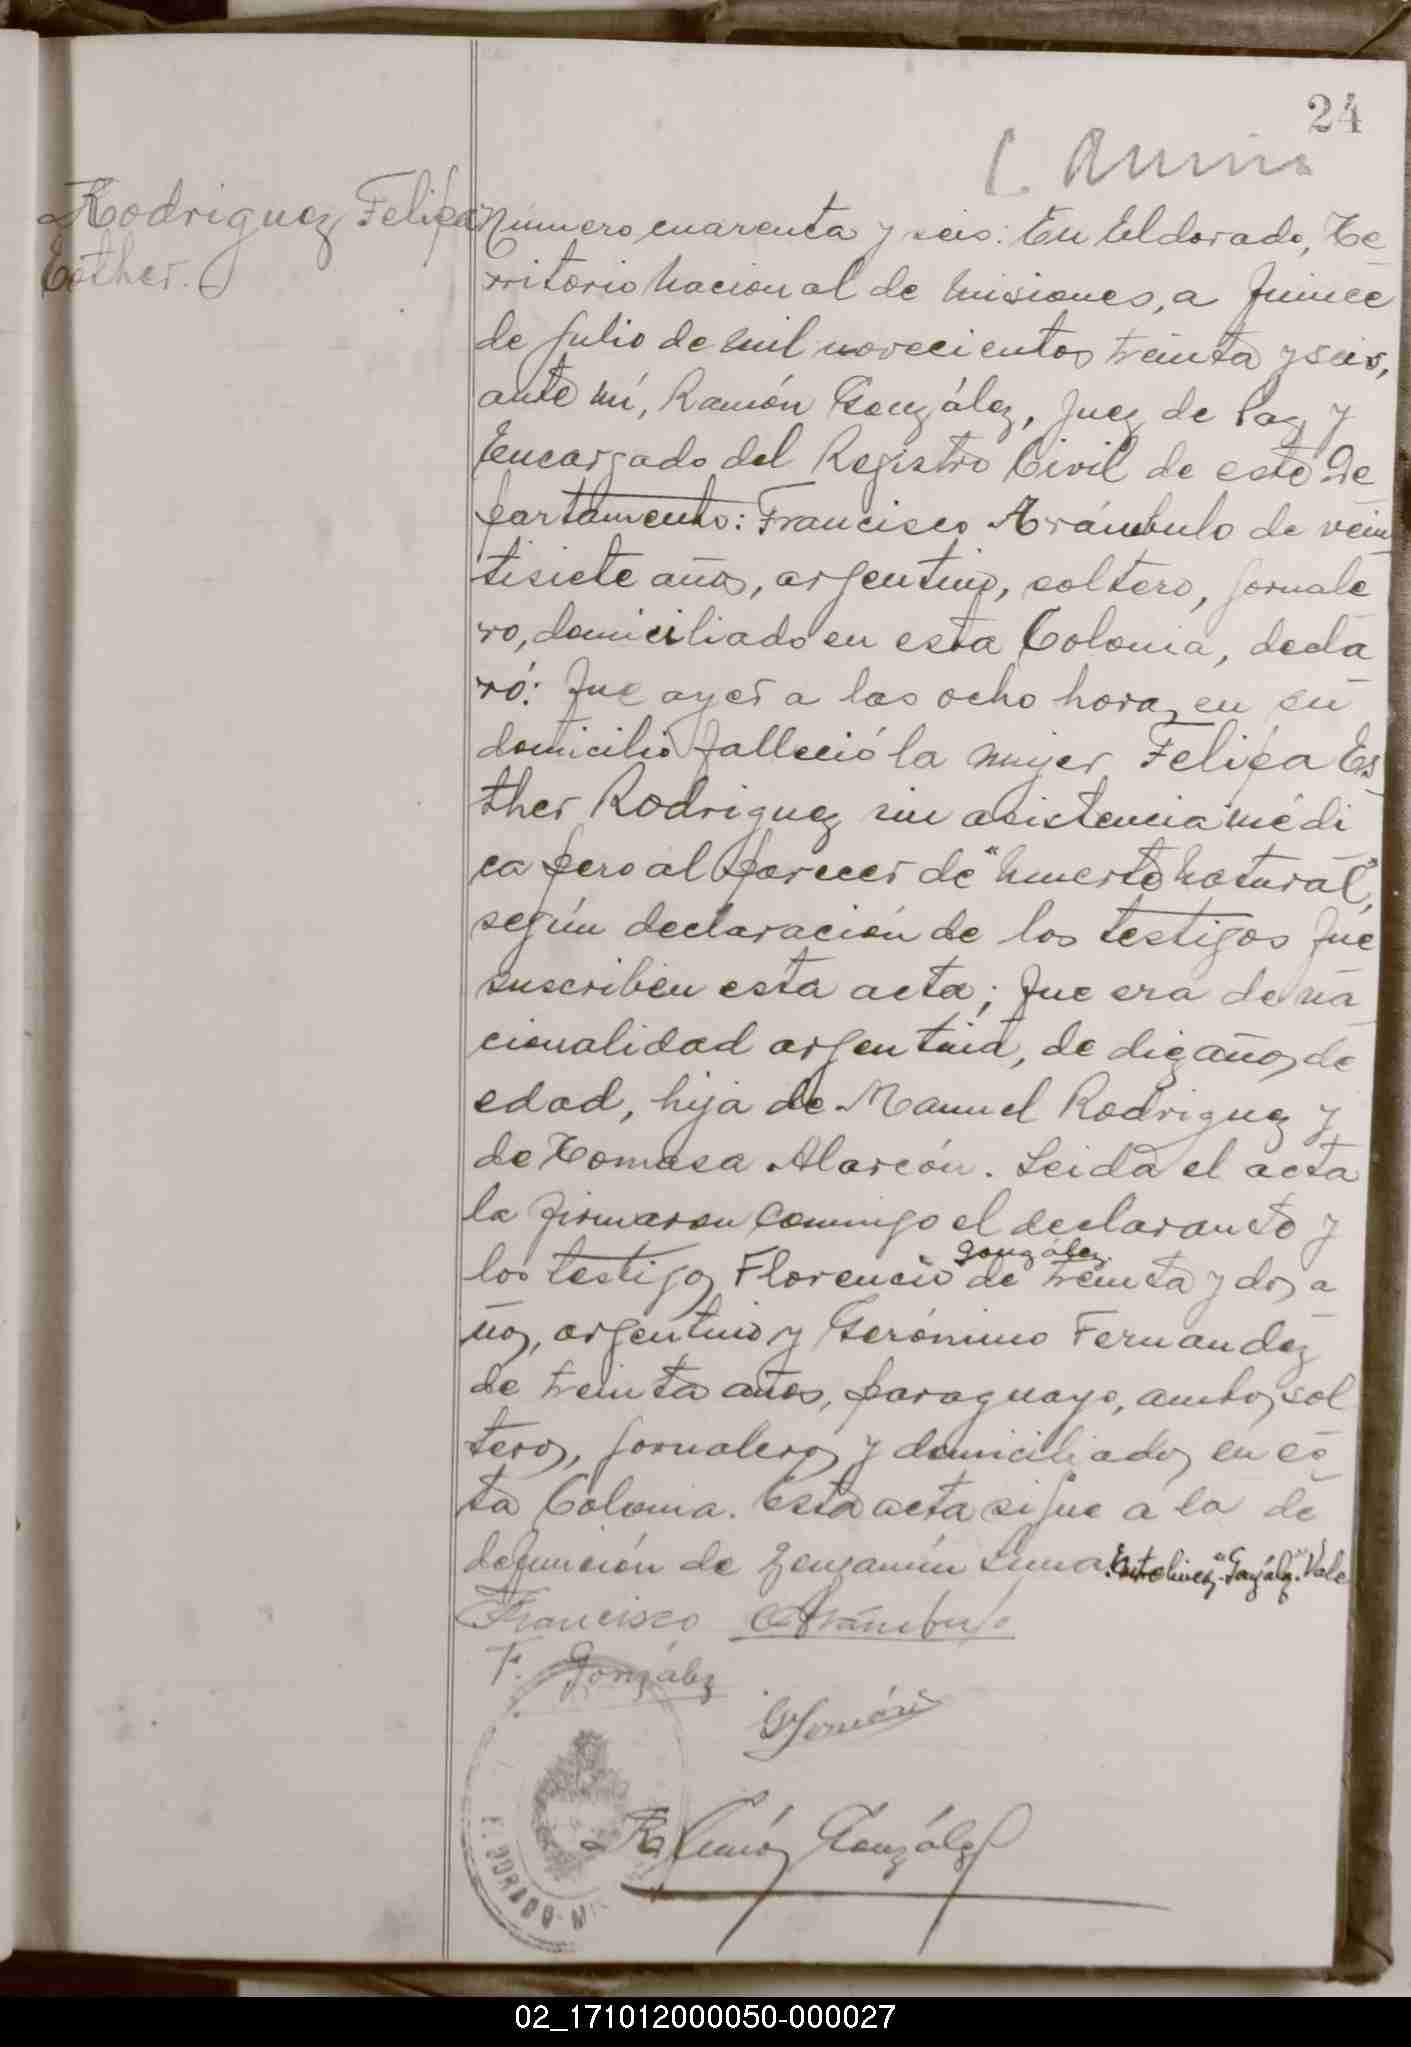 24
Rodriguez, Felipa
Esther.
Número cuarenta y seis: En Eldorado, Te-
rritorio Nacional de Misiones, a quince
de Julio de mil novecientos treinta y seis,
ante mí, Ramón González, Juez de Paz y
Encargado del Registro Civil de este De-
partamento: Francisco Arámbulo de vein-
tisiete años, argentino, soltero, jornale-
ro, domiciliado en esta Colonia, decla-
ró: Que ayer a las ocho horas en su
domicilio falleció la mujer Felipa Es-
ther Rodriguez sin asistencia médi-
ca pero al parecer de "Muerte Natural",
según declaración de los testigos que
suscriben esta acta; que era de na-
cionalidad argentina, de diez años de
edad, hija de Manuel Rodriguez y
de Tomasa Alarcón. Leida el acta
la firmaron conmigo el declarante y
González
los testigos Florencio de treinta y dos a-
ños, argentino y Gerónimo Fernandez
de treinta años, paraguayo, ambos sol
teros, jornaleros y domiciliados en es-
ta Colonia. Esta acta sigue a la de
defunción de Benjamín Luna. Entrelineas "González" Vale
Francisco Arámbulo
F. González
Ramón González
ELDORADO
02_171012000050-000027